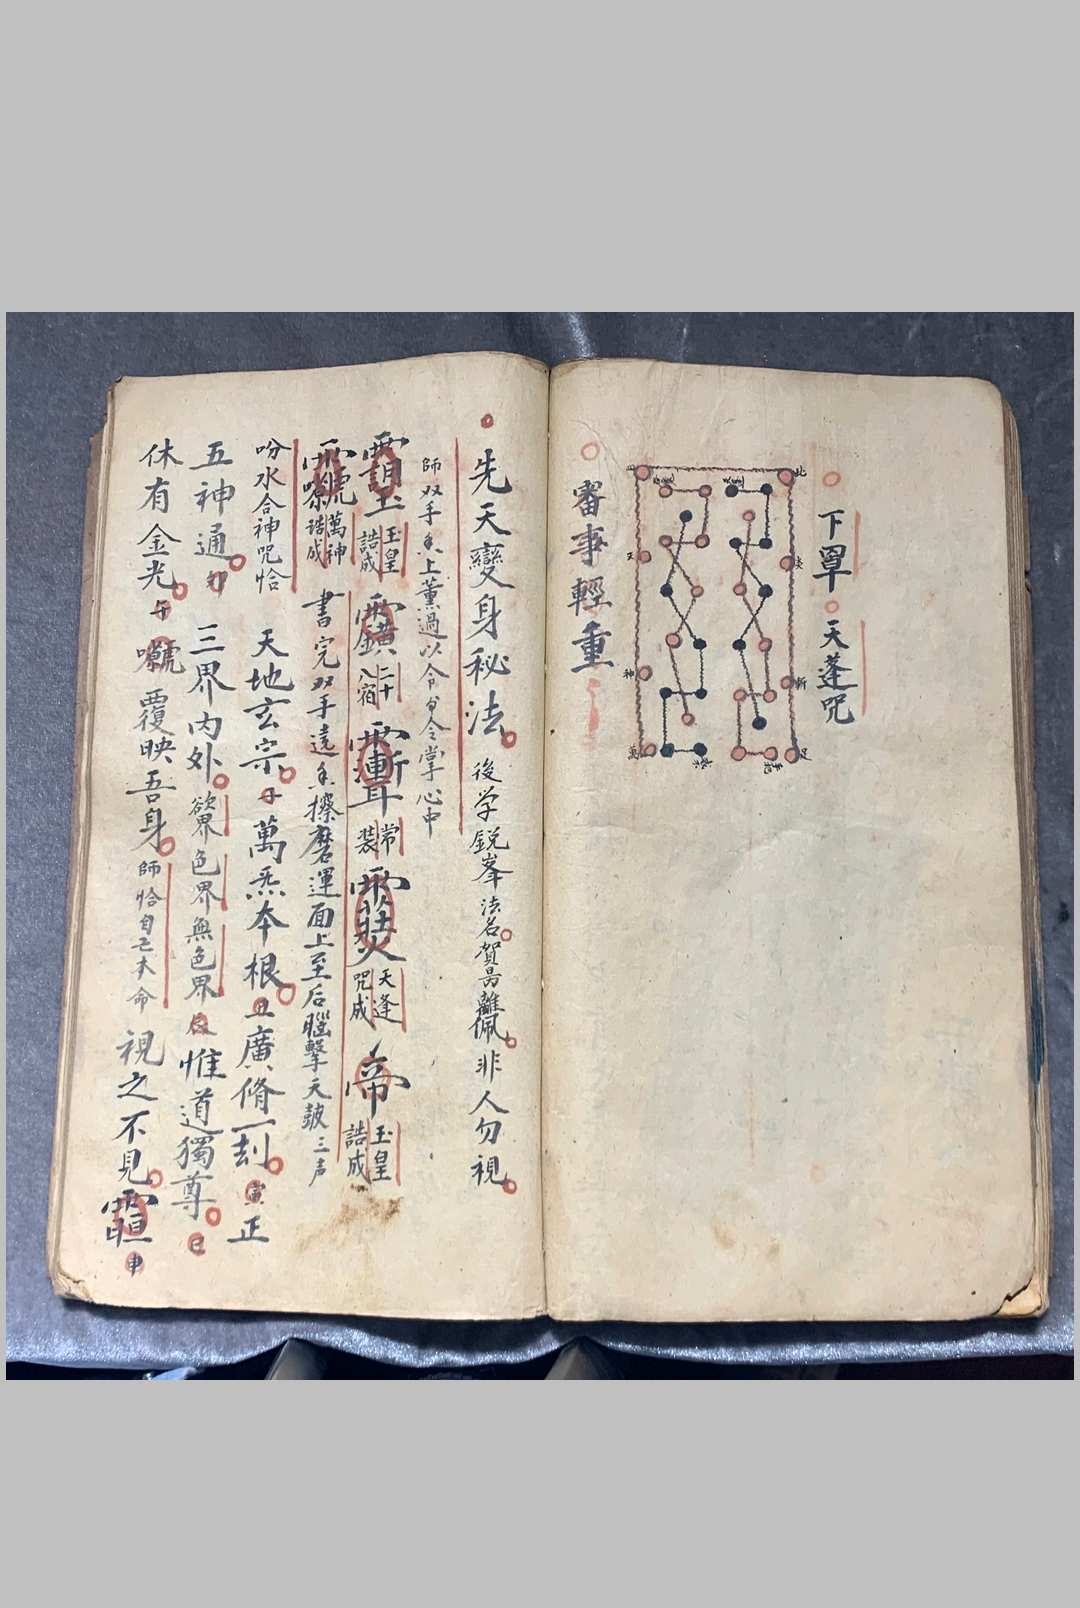 下罩 天蓬咒
北
足
神
審事輕重
先天變身秘法 後学鋭峯法名賀昌離佩 非人勿視
師双手 上薰過以令 令掌心中
玉皇誥成 二十八宿 常装 天逢咒成 帝 玉皇誥成
萬神誥成 書完双手遶 擦磨運面上至后腦擊天皷三声
吩水合神咒恰 天地玄宗 子 萬炁本根 丑 廣脩一刼 寅 正
五神通 卯 三界内外 欲界色界無色界 辰 惟道獨尊 巳
休有金光 午 覆映吾身 師恰自己本命 視之不見 申